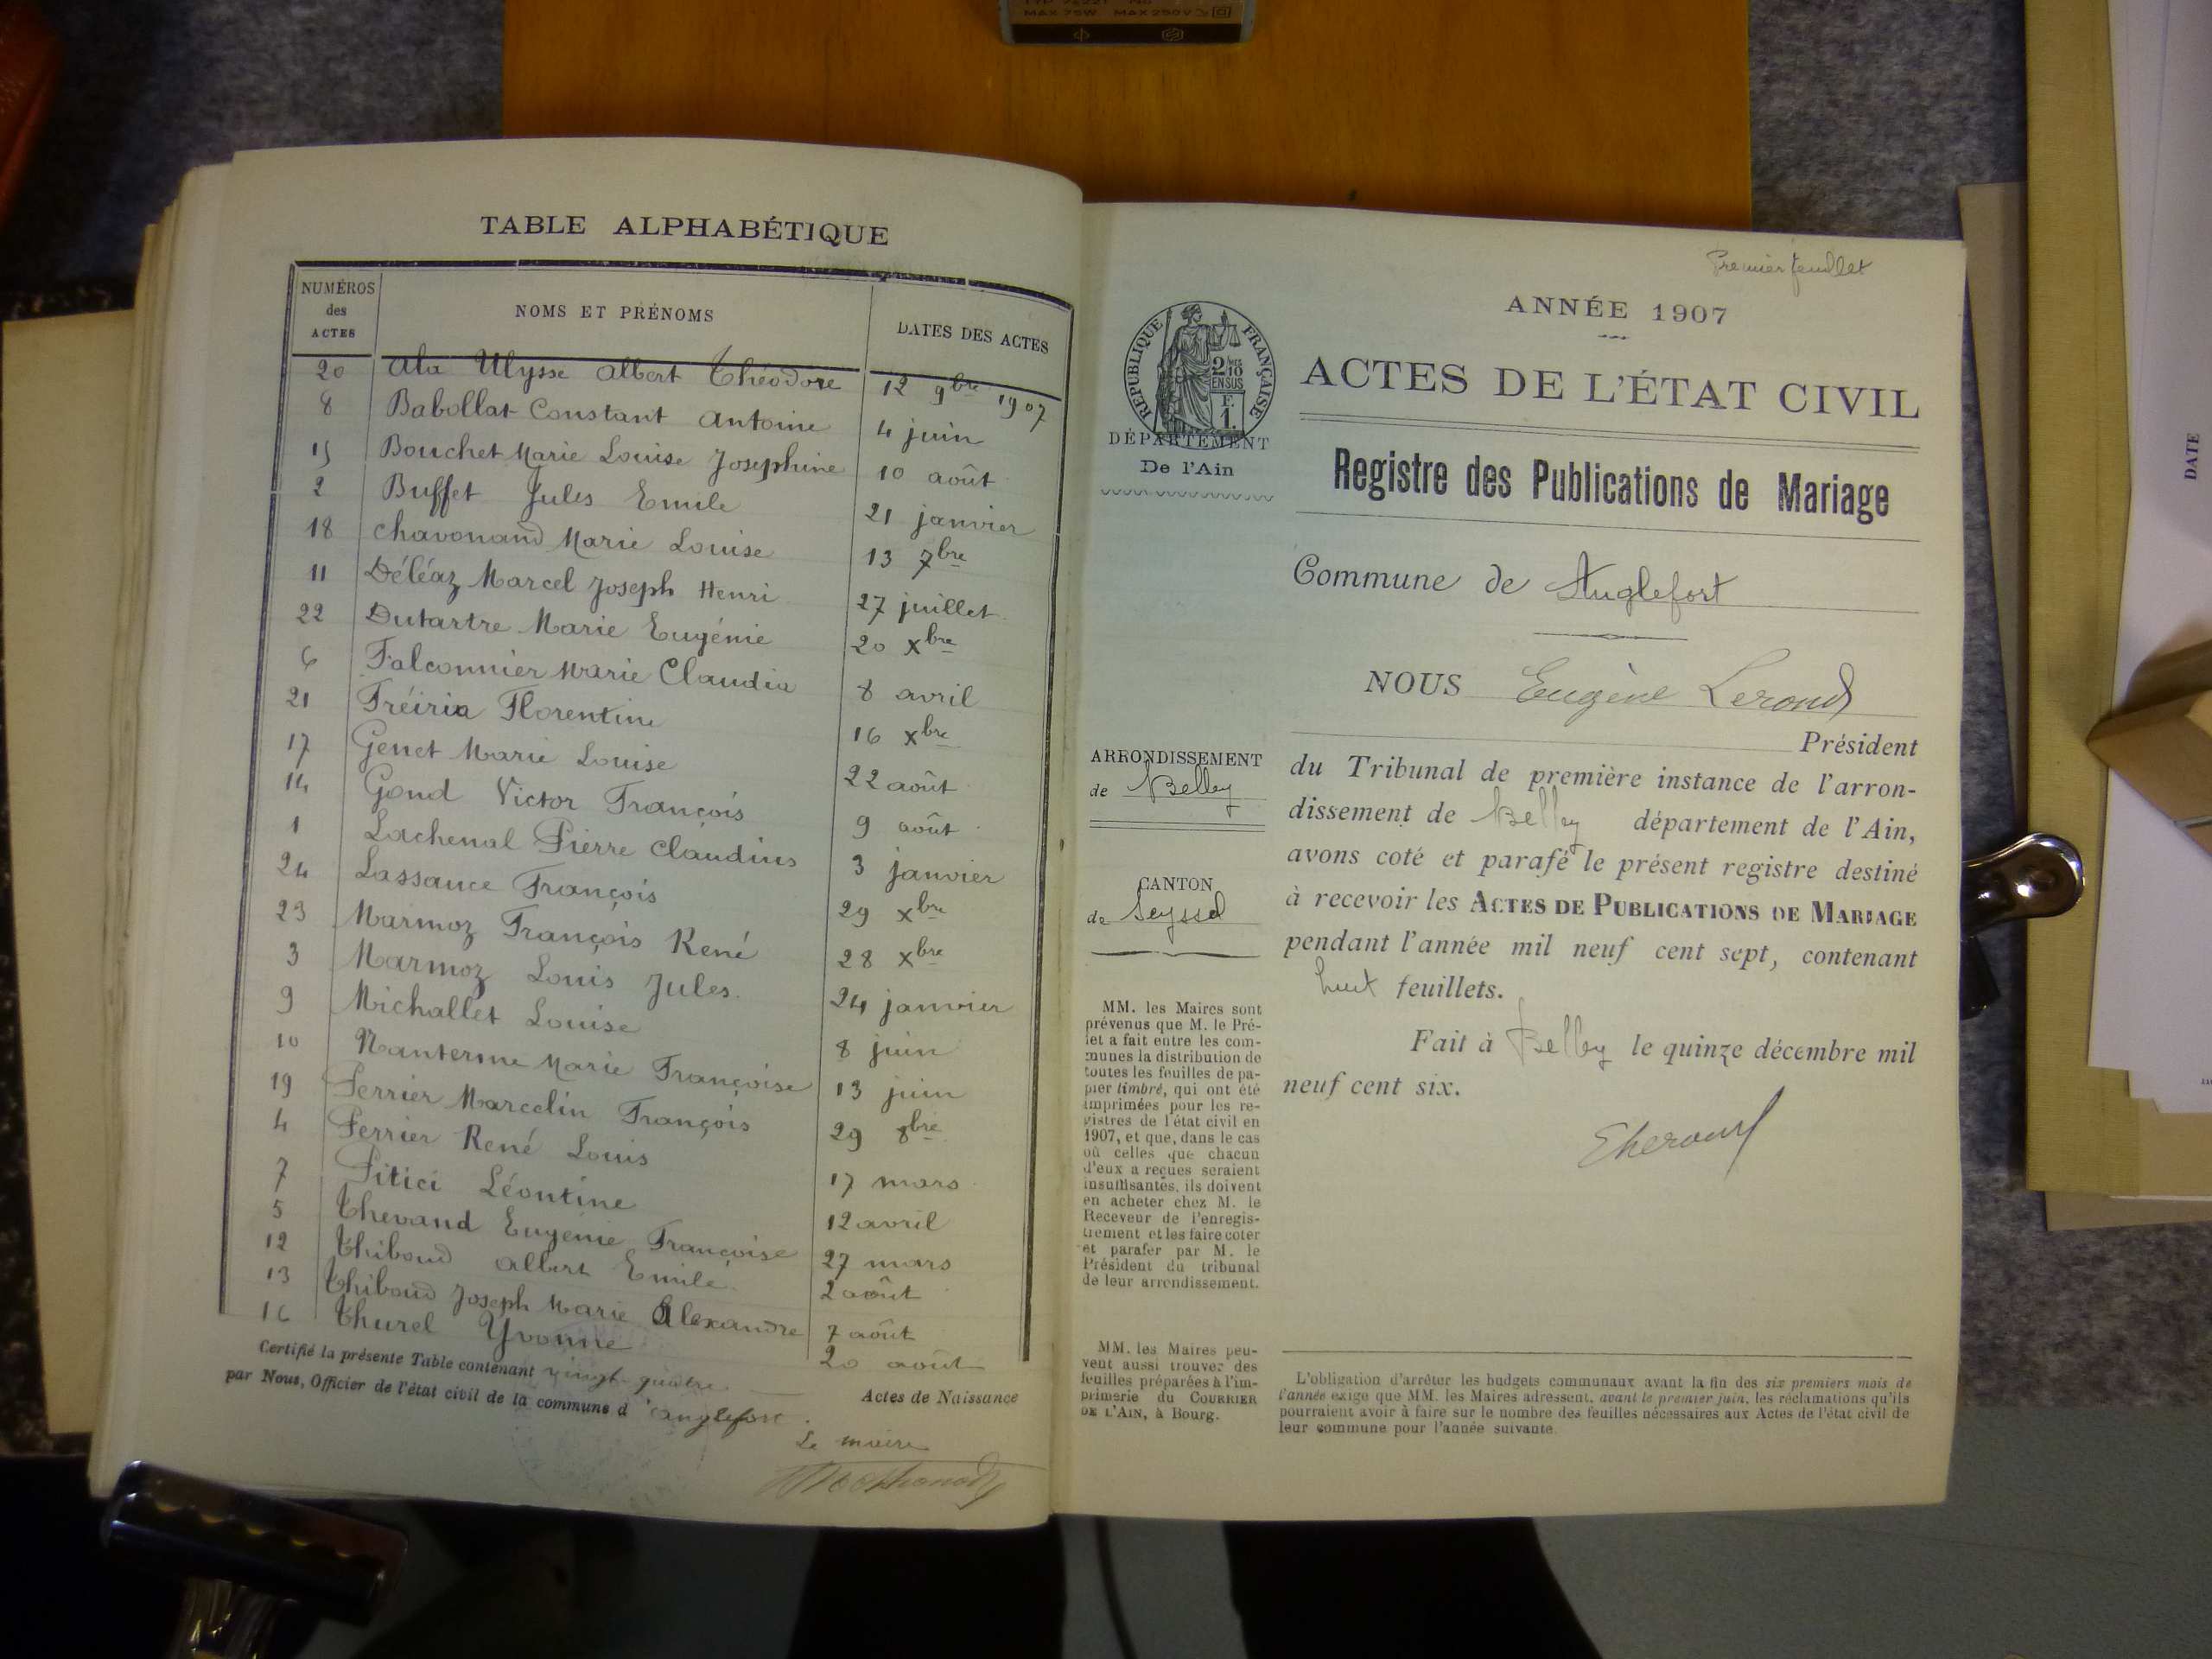 MAX 75W MAX 250V
TABLE ALPHABÉTIQUE
NUMÉROS des ACTES
NOMS ET PRÉNOMS
DATES DES ACTES
20 Ala Ulysse Albert Théodore 12 9bre 1907
8 Babollat Constant Antoine 4 juin
15 Bouchet Marie Louise Joséphine 10 août
2 Buffet Jules Emile 21 janvier
18 Chavonand Marie Louise 13 7bre
11 Déléaz Marcel Joseph Henri 27 juillet
22 Dutartre Marie Eugénie 20 xbre
6 Falconnier Marie Claudia 8 avril
21 Fréiria Florentine 16 xbre
17 Genet Marie Louise 22 août
14 Gond Victor François 9 août
1 Lachenal Pierre Claudius 3 janvier
24 Lassauce François 29 xbre
23 Marmoz François René 28 xbre
3 Marmoz Louis Jules 24 janvier
9 Michallet Louise 8 juin
10 Nanterme Marie Françoise 13 juin
19 Perrier Marcelin François 29 8bre
4 Perrier René Louis 17 mars
7 Pitici Léontine 12 avril
5 Thevand Eugénie Françoise 27 mars
12 Thiboud Albert Emile 2 août
13 Thiboud Joseph Marie Alexandre 7 août
16 Thurel Yvonne 20 août
Certifié la présente Table contenant vingt-quatre Actes de Naissance
par Nous, Officier de l'état civil de la commune d'Anglefort.
Le maire
Premier feuillet
ANNÉE 1907
RÉPUBLIQUE FRANÇAISE
2/10 EN SUS
F. 1.
ACTES DE L'ÉTAT CIVIL
DÉPARTEMENT
De l'Ain
Registre des Publications de Mariage
Commune de Anglefort
NOUS Eugène Lerond
Président
ARRONDISSEMENT
de Belley
du Tribunal de première instance de l'arron-
dissement de Belley département de l'Ain,
avons coté et parafé le présent registre destiné
à recevoir les ACTES DE PUBLICATIONS DE MARIAGE
pendant l'année mil neuf cent sept, contenant
huit feuillets.
Fait à Belley le quinze décembre mil
neuf cent six.
CANTON
de Seyssel
MM. les Maires sont
prévenus que M. le Pré-
fet a fait entre les com-
munes la distribution de
toutes les feuilles de pa-
pier timbré, qui ont été
imprimées pour les re-
gistres de l'état civil en
1907, et que, dans le cas
où celles que chacun
d'eux a reçues seraient
insuffisantes, ils doivent
en acheter chez M. le
Receveur de l'enregis-
trement et les faire coter
et parafer par M. le
Président du tribunal
de leur arrondissement.
MM. les Maires peu-
vent aussi trouver des
feuilles préparées à l'im-
primerie du COURRIER
DE L'AIN, à Bourg.
L'obligation d'arrêter les budgets communaux avant la fin des six premiers mois de
l'année exige que MM. les Maires adressent, avant le premier juin, les réclamations qu'ils
pourraient avoir à faire sur le nombre des feuilles nécessaires aux Actes de l'état civil de
leur commune pour l'année suivante.
DATE